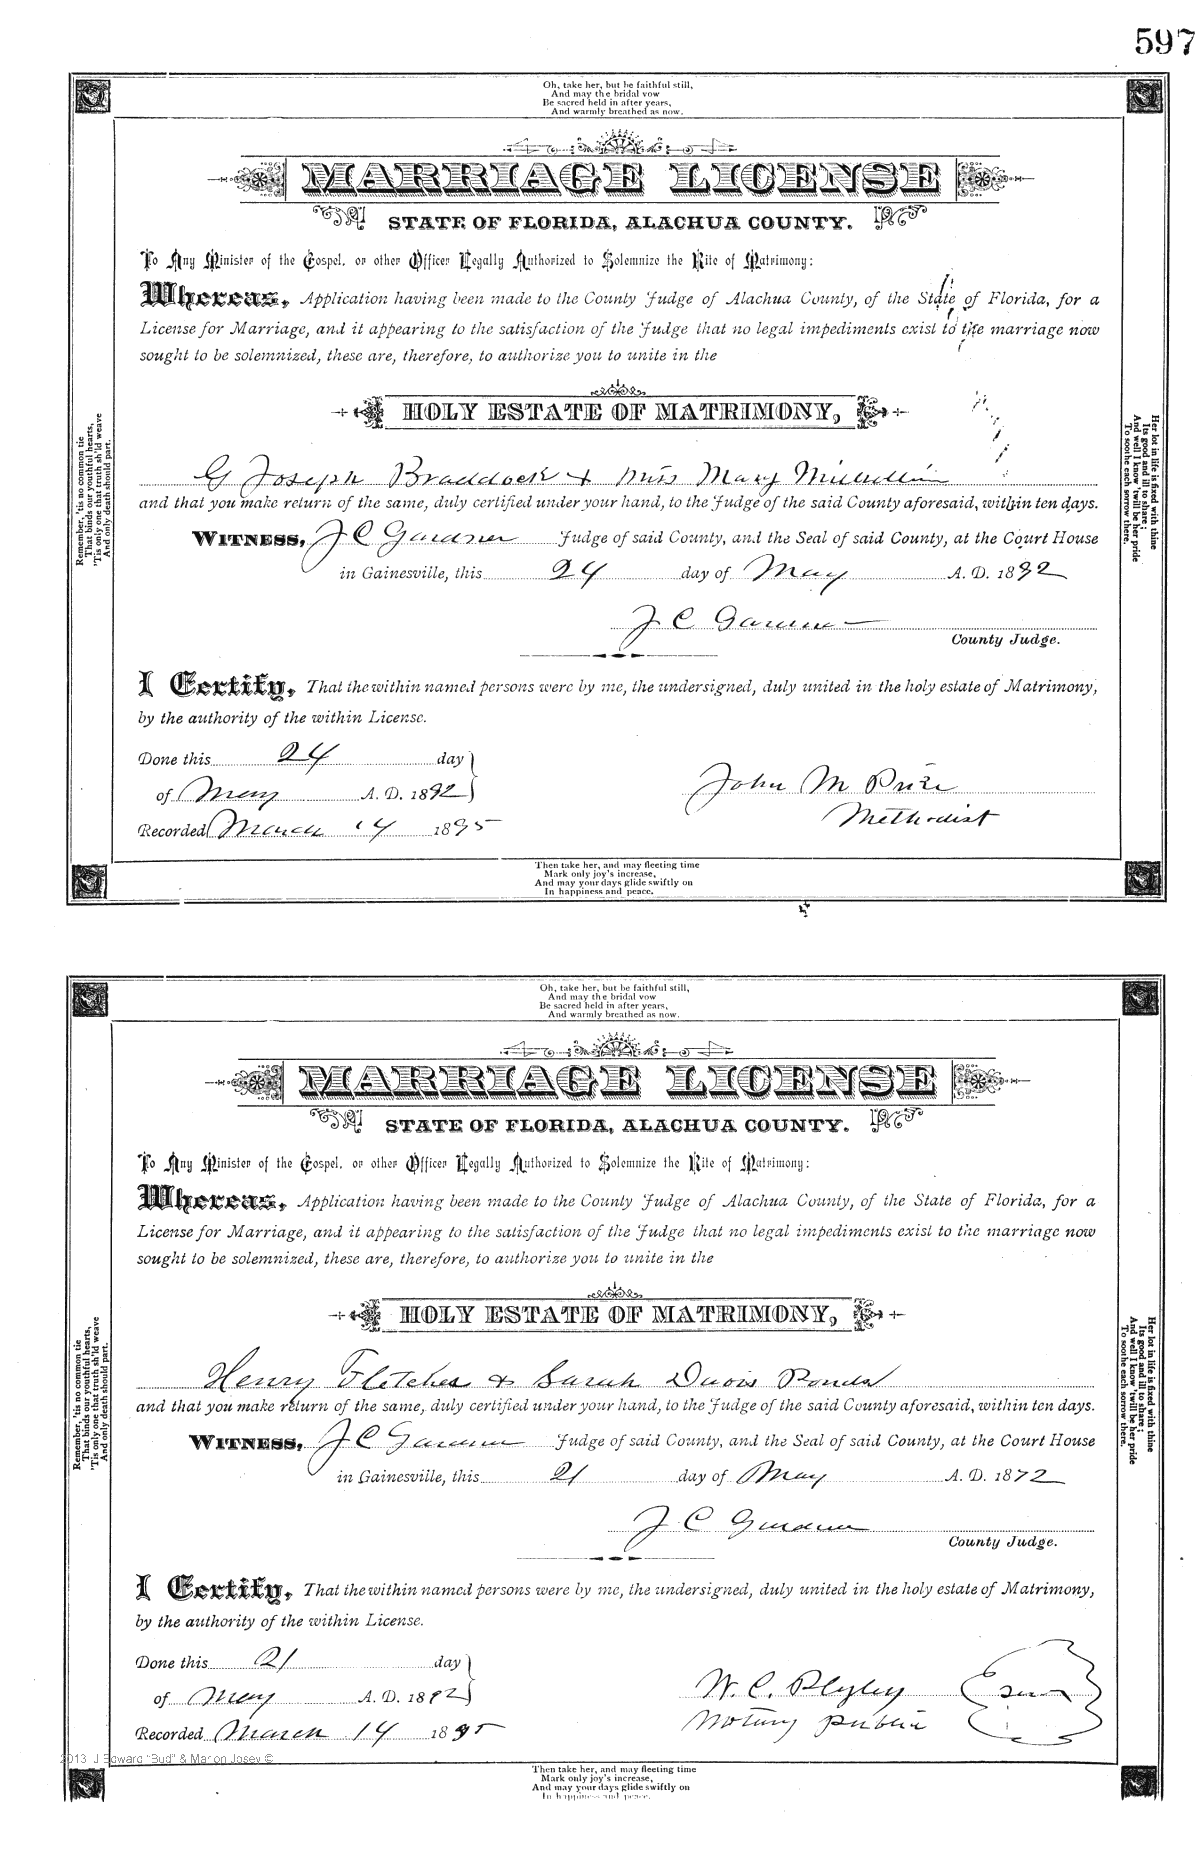 597
Oh, take her, but be faithful still,
And may the bridal vow
Be sacred held in after years,
And warmly breathed as now.
MARRIAGE LICENSE
STATE OF FLORIDA, ALACHUA COUNTY.
To Any Minister of the Gospel, or other Officer Legally Authorized to Solemnize the Rite of Matrimony:
Whereas, Application having been made to the County Judge of Alachua County, of the State of Florida, for a
License for Marriage, and it appearing to the satisfaction of the Judge that no legal impediments exist to the marriage now
sought to be solemnized, these are, therefore, to authorize you to unite in the
HOLY ESTATE OF MATRIMONY,
G Joseph Braddock & Miss Mary
and that you make return of the same, duly certified under your hand, to the Judge of the said County aforesaid, within ten days.
WITNESS, J C Gardner Judge of said County, and the Seal of said County, at the Court House
in Gainesville, this 24 day of May A. D. 1892
J C Gardner
County Judge.
I Certify, That the within named persons were by me, the undersigned, duly united in the holy estate of Matrimony,
by the authority of the within License.
Done this 24 day
of May A. D. 1892
John M Price
Methodist
Recorded March 14 1895
Remember, 'tis no common tie
That binds our youthful hearts,
'Tis only one that truth sh'ld weave
And only death should part.
Her lot in life is fixed with thine
Its good and ill to share;
And well I know 'twill be her pride
To soothe each sorrow there.
Then take her, and may fleeting time
Mark only joy's increase,
And may your days glide swiftly on
In happiness and peace.
Oh, take her, but be faithful still,
And may the bridal vow
Be sacred held in after years,
And warmly breathed as now.
MARRIAGE LICENSE
STATE OF FLORIDA, ALACHUA COUNTY.
To Any Minister of the Gospel, or other Officer Legally Authorized to Solemnize the Rite of Matrimony:
Whereas, Application having been made to the County Judge of Alachua County, of the State of Florida, for a
License for Marriage, and it appearing to the satisfaction of the Judge that no legal impediments exist to the marriage now
sought to be solemnized, these are, therefore, to authorize you to unite in the
HOLY ESTATE OF MATRIMONY,
Henry Fletcher & Sarah Davis
and that you make return of the same, duly certified under your hand, to the Judge of the said County aforesaid, within ten days.
WITNESS, J C Gardner Judge of said County, and the Seal of said County, at the Court House
in Gainesville, this 21 day of May A. D. 1872
J C Gardner
County Judge.
I Certify, That the within named persons were by me, the undersigned, duly united in the holy estate of Matrimony,
by the authority of the within License.
Done this 21 day
of May A. D. 1892
W. C.
Notary Public
Recorded March 14 1895
Remember, 'tis no common tie
That binds our youthful hearts,
'Tis only one that truth sh'ld weave
And only death should part.
Her lot in life is fixed with thine
Its good and ill to share;
And well I know 'twill be her pride
To soothe each sorrow there.
2013 J Edward "Bud" & Marion Josey ©
Then take her, and may fleeting time
Mark only joy's increase,
And may your days glide swiftly on
In happiness and peace.